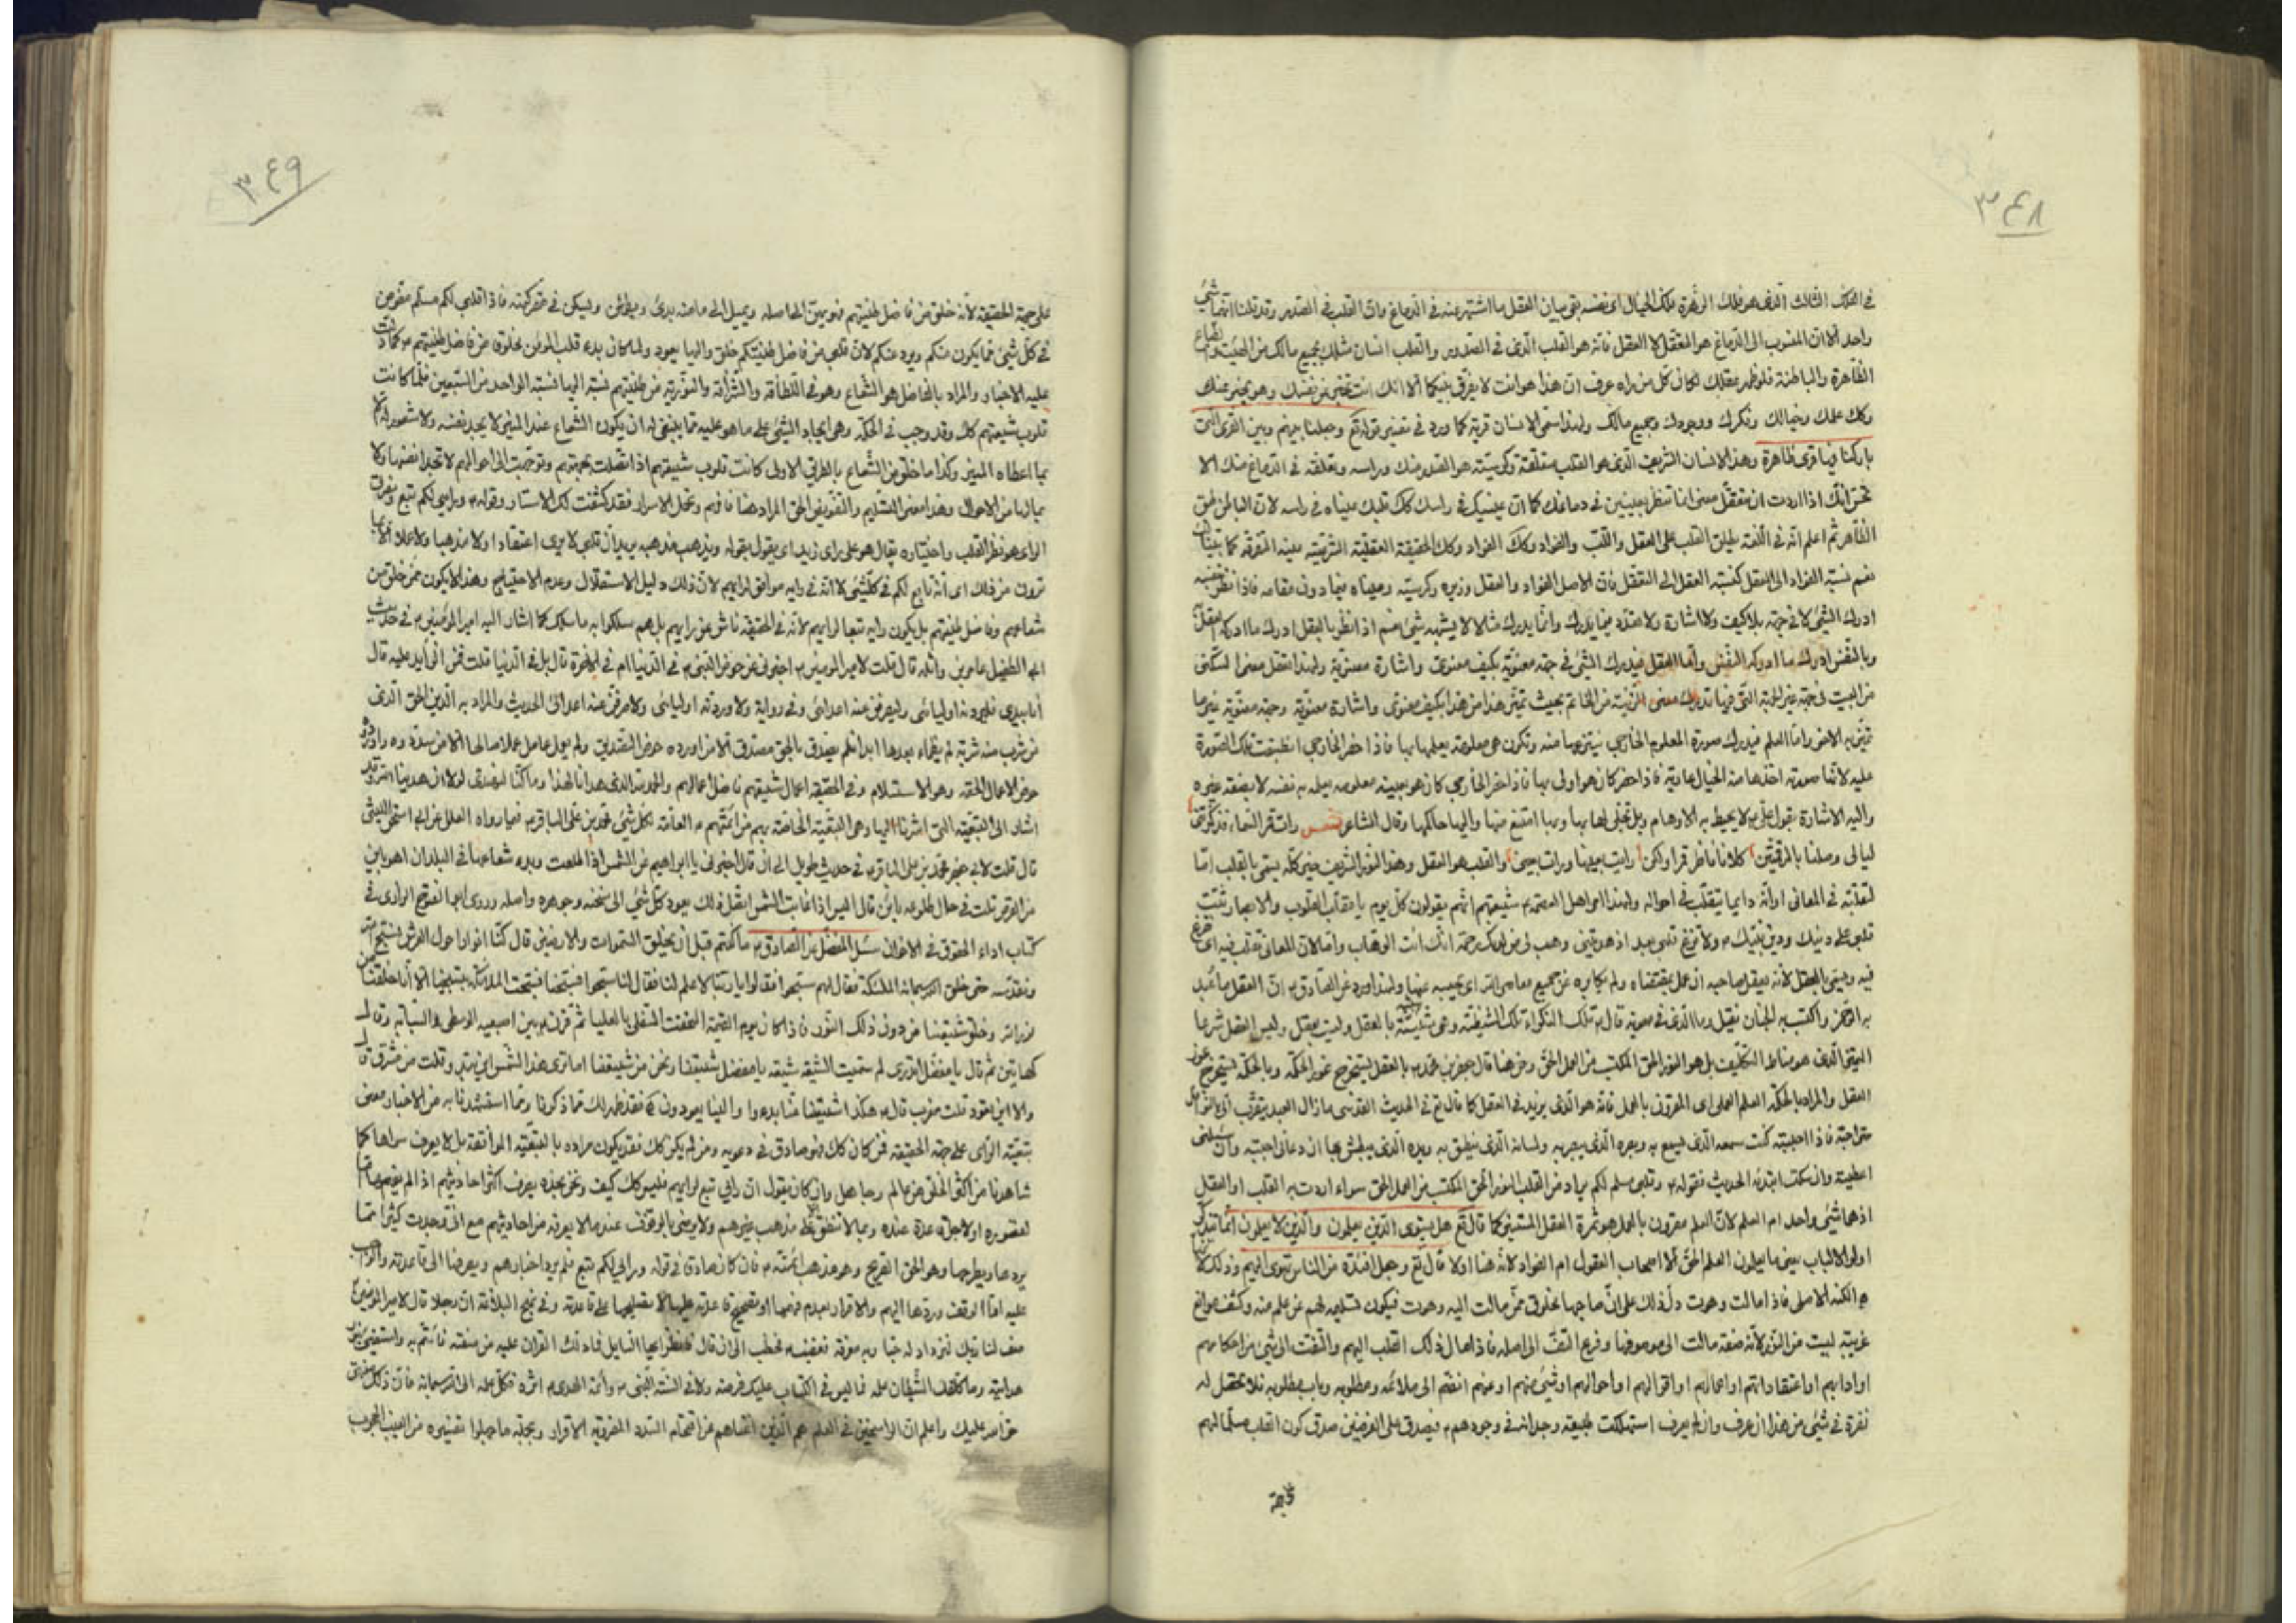 ٣٤٨
في الفلك الثالث الذي هو فلك الزهرة فلك الخيال اي نفسه بقى بيان العقل ما اشتهر عنه في الدماغ وان القلب في الصدر وقد قلنا انهما شئ
واحد الا ان المنسوب الى الدماغ هو التعقل لا العقل فانه هو القلب الذي في الصدر والقلب انسان مثلك بجميع مالك من
الظاهرة والباطنة فلو ظهر عقلك لكان كل من راه عرف ان هذا هو انت لا يفرق بينكما الا انك انت تخبر عن نفسك وهو يخبر عنك
وكك علمك وخيالك وفكرك ووجودك وجميع مالك ولهذا سمى الانسان قرية كما ورد في تفسير قوله تع وجعلنا بينهم وبين القرى التي
باركنا فيها قرى ظاهرة وهذا الانسان الشريف الذي هو القلب متعلقه وكرسيه هو الصدر منك وراسه وتعلقه في الدماغ منك الا
تحس انك اذا اردت ان تتعقل معنى انما تنظر بعينين في دماغك كما ان عينيك في راسك كك قلبك عيناه في راسه لان الباطن طبق
الظاهر ثم اعلم انه في اللغة يطلق القلب على العقل واللب والفؤاد وكك الفؤاد وكك الحقيقة
نعم نسبة الفؤاد الى العقل كنسبة العقل الى التعقل فان الاصل الفؤاد والعقل وزيره وكرسيه وعيناه فيما دون مقامه فاذا نظر بنفسه
ادرك الشئ لا في جهة بلا كيف ولا اشارة ولا
وبالنفس ادرك ما ادركه النفس واما العقل فيدرك الشئ في جهة معنوية بكيف معنوي واشارة معنوية ولهذا تعقل معنى السكنى
من البيت في جهة غير الجهة التي فيها تدرك معنى الزينة من الخاتم بحيث تميز هذا من هذا بكيف معنوي واشارة معنوية وجهة معنوية غير ما
تميز به الاخر واما العلم فيدرك صورة المعلوم الخارجي ينتزعها منه وتكون هي معلومة يعلمها بها فاذا حضر الخارجي انطبقت تلك الصورة
عليه لانها صورته اخذها منه الخيال عارية فاذا حضر كان هو اولى بها فاذا حضر الخارجي كان هو بعينه معلومه يعلمه به نفسه لا بصفته غيره
واليه الاشارة بقول علي ع لا يحيط به الاوهام وبل تجلى لها بها وبها امتنع منها واليها حاكمها وقال الشاعر رات قمر السماء فذكرتني
ليالي وصلنا بالرقمتين كلانا ناظر قمرا ولكن رايت بعينها ورات بعيني والقلب هو العقل وهذا النور الشريف كله يسمى بالقلب اما
لتقلبه في المعاني او انه دايما يتقلب في احواله ولهذا امر اهل العصمه ع شيعتهم انهم يقولون كل يوم يا مقلب القلوب والابصار ثبت
قلبي على دينك ودين نبيك ص ولا تزغ قلبي بعد اذ هديتني وهب لي من لدنك رحمة انك انت الوهاب
فيه ويسمى بالعقل لانه يعقل صاحبه ان عمل بمقتضاه ولم يكابره عن جميع معاصي الله اي يحبسه عنها ولهذا ورد عن الصادق ع ان العقل ما عبد
به الرحمن واكتسب به الجنان فقيل وما الذي في معوية قال ع تلك النكراء تلك الشيطنة وهي شبيهة بالعقل وليست بعقل وليس العقل شرعا
الذي هو مناط التكليف بل هو النور الحق المكتسب من العمل الحق ومن هنا قال جعفر بن محمد ع بالعقل يستخرج غور الحكمة وبالحكمة يستخرج غور
العقل والمراد بالحكمة العلم العملي اي المقرون بالعمل فانه هو الذي يزيد في العقل كما قال تع في الحديث القدسي ما زال العبد يتقرب الي بالنوافل
حتى احبه فاذا احببته كنت سمعه الذي يسمع به وبصره الذي يبصر به ولسانه الذي ينطق به ويده الذي يبطش بها ان دعاني اجبته وان سئلني
اعطيته وان سكت ابتدئه الحديث فقوله ع وقلبي مسلم لكم يراد من القلب النور الحق المكتسب من العمل الحق سواء اردت به القلب او العقل
اذ هما شئ واحد ام العلم لان العلم مقرون بالعمل هو ثمرة العقل كما قال تع هل يستوى الذين يعلمون والذين لا يعلمون انما يتذكر
اولوا الالباب يعني ما يعلمون العلم الحق الا اصحاب العقول ام الفؤاد لانه هنا اولا قال تع وجعل افئدة من الناس تهوى اليهم وذلك لان
الاصلى فاذا مالت وهوت دل ذلك على ان صاحبها مخلوق ممن مالت اليه وهوت فيكون تسليمه لهم عن علم منه وكشف
غريبة ليست من النور لانه صفة مالت الى موصوفها وفرع التفت الى اصله فاذا مال ذلك القلب اليهم والتفت الى شئ من احكامهم
او ادابهم او اعتقاداتهم او اعمالهم او اقوالهم او احوالهم او شئ منهم او عنهم انضم الى ملائمه ومطلوبه وباب مطلوبه فلا تحصل له
نفرة في شئ من هذا ان عرف وان لم يعرف استهلكت طبيعته وجدانه في وجودهم ع فيصدق على الفرضين صدق كون القلب مسلما لهم
على جهة
٣٤٩
على جهة الحقيقة لانه خلق من فاضل طينتهم فهو يحن الى اصله ويميل الى ما منه بدئ ويطمئن ويسكن في مقر كينونته فاذا قلبى لكم مسلم مفوض
في كل شئ مما يكون منكم ويرد عنكم لان قلبي من فاضل طينتكم خلق واليها يعود ولما كان بدء قلب المؤمن مخلوق من فاضل طينتهم ع كما دلت
عليه الاخبار والمراد بالفاضل هو الشعاع وهو في اللطافة والشرافة والنورية من طينتهم نسبته اليها نسبة الواحد من السبعين فلما كانت
قلوب شيعتهم كك وقد وجب في الحكمة وهي ايجاد الشئ على ما هو عليه مما ينبغي له ان يكون الشعاع عند المنير لا يجد نفسه ولا شعور له الا
بما اعطاه المنير وكذا ما خلق من الشعاع بالطريق الاولى كانت قلوب شيعتهم اذا اتصلت بجهتهم وتوجهت الى احوالهم لا تجد انفسها ولا
مالها من الاحوال وهذا معنى التسليم والتفويض الحق المراد هنا فافهم وتحمل الاسرار فقد كشفت لك الاستار وقوله ع ورايي لكم تبع
الراى هو نظر القلب واختياره يقال هو على راى زيد اي يقول بقوله ويذهب مذهبه يريد ان قلبي لا يرى اعتقادا ولا مذهبا ولا عملا الا ما
ترون من ذلك اي انه تابع لكم في كل شئ لا انه في رايه موافق لرايهم لان ذلك دليل الاستقلال وعدم الاحتياج وهذا لا يكون ممن خلق من
شعاعهم وفاضل طينتهم بل يكون رايه تبعا لرايهم لانه في الحقيقة ناش عن رايهم بل هم سلكوا به ما سلك كما اشار اليه امير المؤمنين ع في حديث
ابي الطفيل عامر بن واثله قال قلت لامير المؤمنين ع اخبرني عن حوض النبي ص في الدنيا ام في الاخرة قال بل في الدنيا قلت فمن الذايد عليه قال
انا بيدي فليردنه اوليائي وليصرفن عنه اعدائي وفي رواية ولاوردنه اوليائي ولاصرفن عنه اعدائي الحديث والمراد به الدين الحق الذي
من شرب منه شربة لم يظماء بعدها ابدا فلم يصدق بالحق مصدق الا من اورده حوض التصديق ولم يعمل عامل عملا صالحا الا من
حوض الاعمال الحقة وهو الاستسلام وفي الحقيقة اعمال شيعتهم فاضل اعمالهم والحمد لله الذي هدانا لهذا وما كنا لنهتدى لولا ان هدينا الله وقد
اشار الى التبعية التي اشرنا اليها وهي التبعية الخاصة بهم من ائمتهم ع العامة لكل شئ محمد بن علي الباقر ع فيما رواه العلل عن ابي اسحق الليثي
قال قلت لابي جعفر محمد بن علي الباقر ع في حديث طويل الى ان قال اخبرنى يا ابراهيم عن الشمس اذا طلعت وبدء شعاعها في البلدان اهو باين
من القرص قلت في حال طلوعه باين قال اليس اذا غابت الشمس اتصل ذلك يعود كل شئ الى سنخه وجوهره واصله وروى ابو الفتوح الرازى في
كتاب اداء الحقوق في الاخوان سئل المفضل عن الصادق ع ما كنتم قبل ان يخلق السموات والارضين قال كنا انوارا حول العرش نسبح الله
ونقدسه حتى خلق الله سبحانه الملئكة فقال لهم سبحوا فقالوا يا ربنا لا علم لنا فقال لنا سبحوا فسبحنا فسبحت الملائكة بتسبيحنا الا انا خلقنا من
نور الله وخلق شيعتنا من دون ذلك النور فاذا كان يوم القيمة التحقت السفلى بالعليا ثم قرن ع بين اصبعيه الوسطى والسبابة وقال
كهاتين ثم قال يا مفضل اتدرى لم سميت الشيعة شيعة يا مفضل شيعتنا منا ونحن من شيعتنا اما ترى هذا الشمس اين تبدو قلت من مشرق قال
والا اين تعود قلت مغرب قال ع هكذا شيعتنا منا بدءوا والينا يعودون ه فقد ظهر لك مما ذكرنا ومما استشهدنا به من الاخبار معنى
تبعية الراى على جهة الحقيقة فمن كان كك فهو صادق في دعويه ومن لم يكن كك فقد يكون مراده بالتبعية الموافقة بل لا يعرف سواها كما
شاهدنا من اكثر الخلق من عالم وجاهل وان كان يقول ان رايي تبع لرايهم فليس كك كيف ونحن نجده يصرف اكثر احاديثهم اذا لم يفهمها اما
لقصوره او لاجل قاعدة عنده وبما لا تنطبق على مذهب غيرهم ولا يرضى بالوقوف عندما لا يعرفه من احاديثهم مع انى وجدت كثيرا مما
يردها ويطرحها وهو الحق الصريح وهو مذهب ائمته ع فان كان صادق في قوله ورايي لكم تبع فلم يرد اخبارهم ويعرضها الى قاعدته والواجب
عليه اما الوقف وردها اليهم والاقرار بعدم فهمها او تصحيح قاعدته عليها لا تصحيحها على قاعدته وفي نهج البلاغة ان رجلا قال لامير المؤمنين ع
صف لنا ربك لنزداد له حبا وبه معرفة فغضب ع فخطب الى ان قال فانظر ايها السايل فما دلك القران عليه من صفته فائتم به واستضئ بنور
هدايته وما كلفك الشيطان علمه مما ليس في الكتاب عليك فرضه ولا في السنة النبي ص وائمة الهدى ع اثره فكل علمه الى الله سبحانه فان ذلك منتهى
حق الله عليك واعلم ان الراسخين في العلم هم الذين اغناهم عن اقتحام السدد المضروبة الاقرار وبجملة ما جهلوا تفسيره من الغيب المحجوب